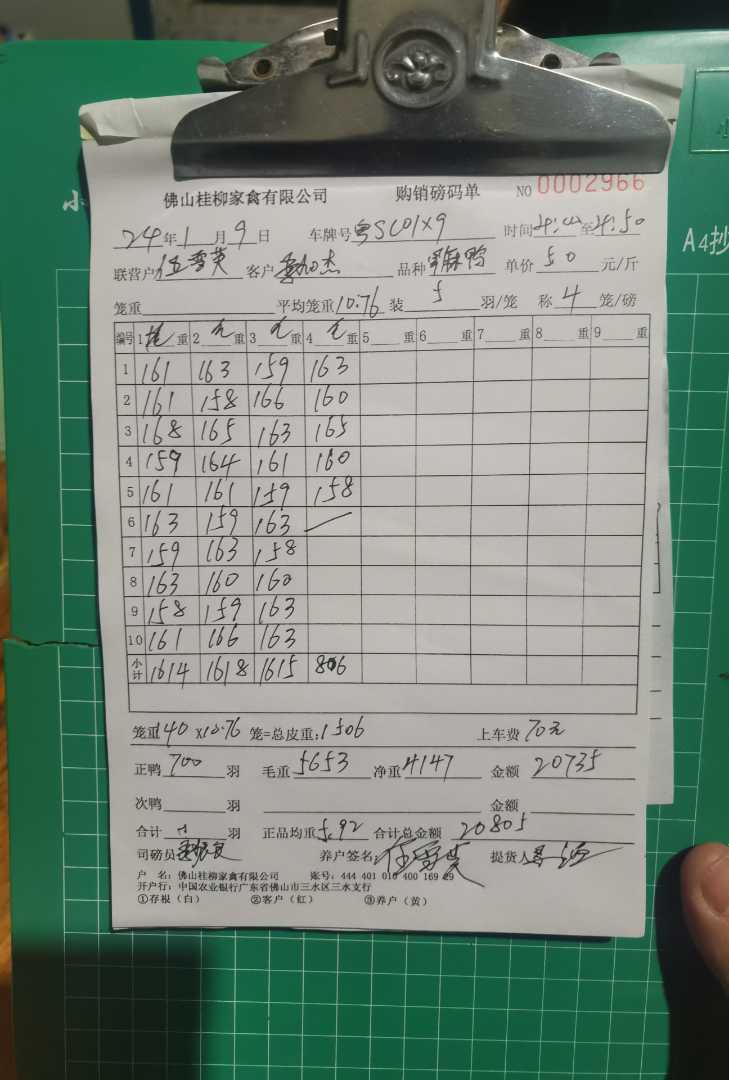 佛山桂柳家禽有限公司 购销磅码单 NO 0002966
24年1月9日 车牌号粤SC01X9 时间 至4:50
联营户伍雪英 客户 杰 品种 麻鸭 单价50元/斤
笼重 平均笼重10.76 装5羽/笼 称4笼/磅
编号 1毛重 2毛重 3毛重 4毛重 5重 6重 7重 8重 9重
1 161 163 159 163
2 161 158 166 160
3 168 165 163 165
4 159 164 161 160
5 161 161 159 158
6 163 159 163
7 159 163 158
8 163 160 160
9 158 159 163
10 161 166 163
小计 1614 1618 1615 806
笼重140×10.76笼=总皮重:1506 上车费70元
正鸭700羽 毛重5653 净重4147 金额20735
次鸭 羽 金额
合计 羽 正品均重5.92 合计总金额20805
司磅员 养户签名:伍雪英 提货人
户 名:佛山桂柳家禽有限公司 账号:444 401 010 400 169 29
开户行:中国农业银行广东省佛山市三水区三水支行
①存根(白) ②客户(红) ③养户(黄)
小
A4抄